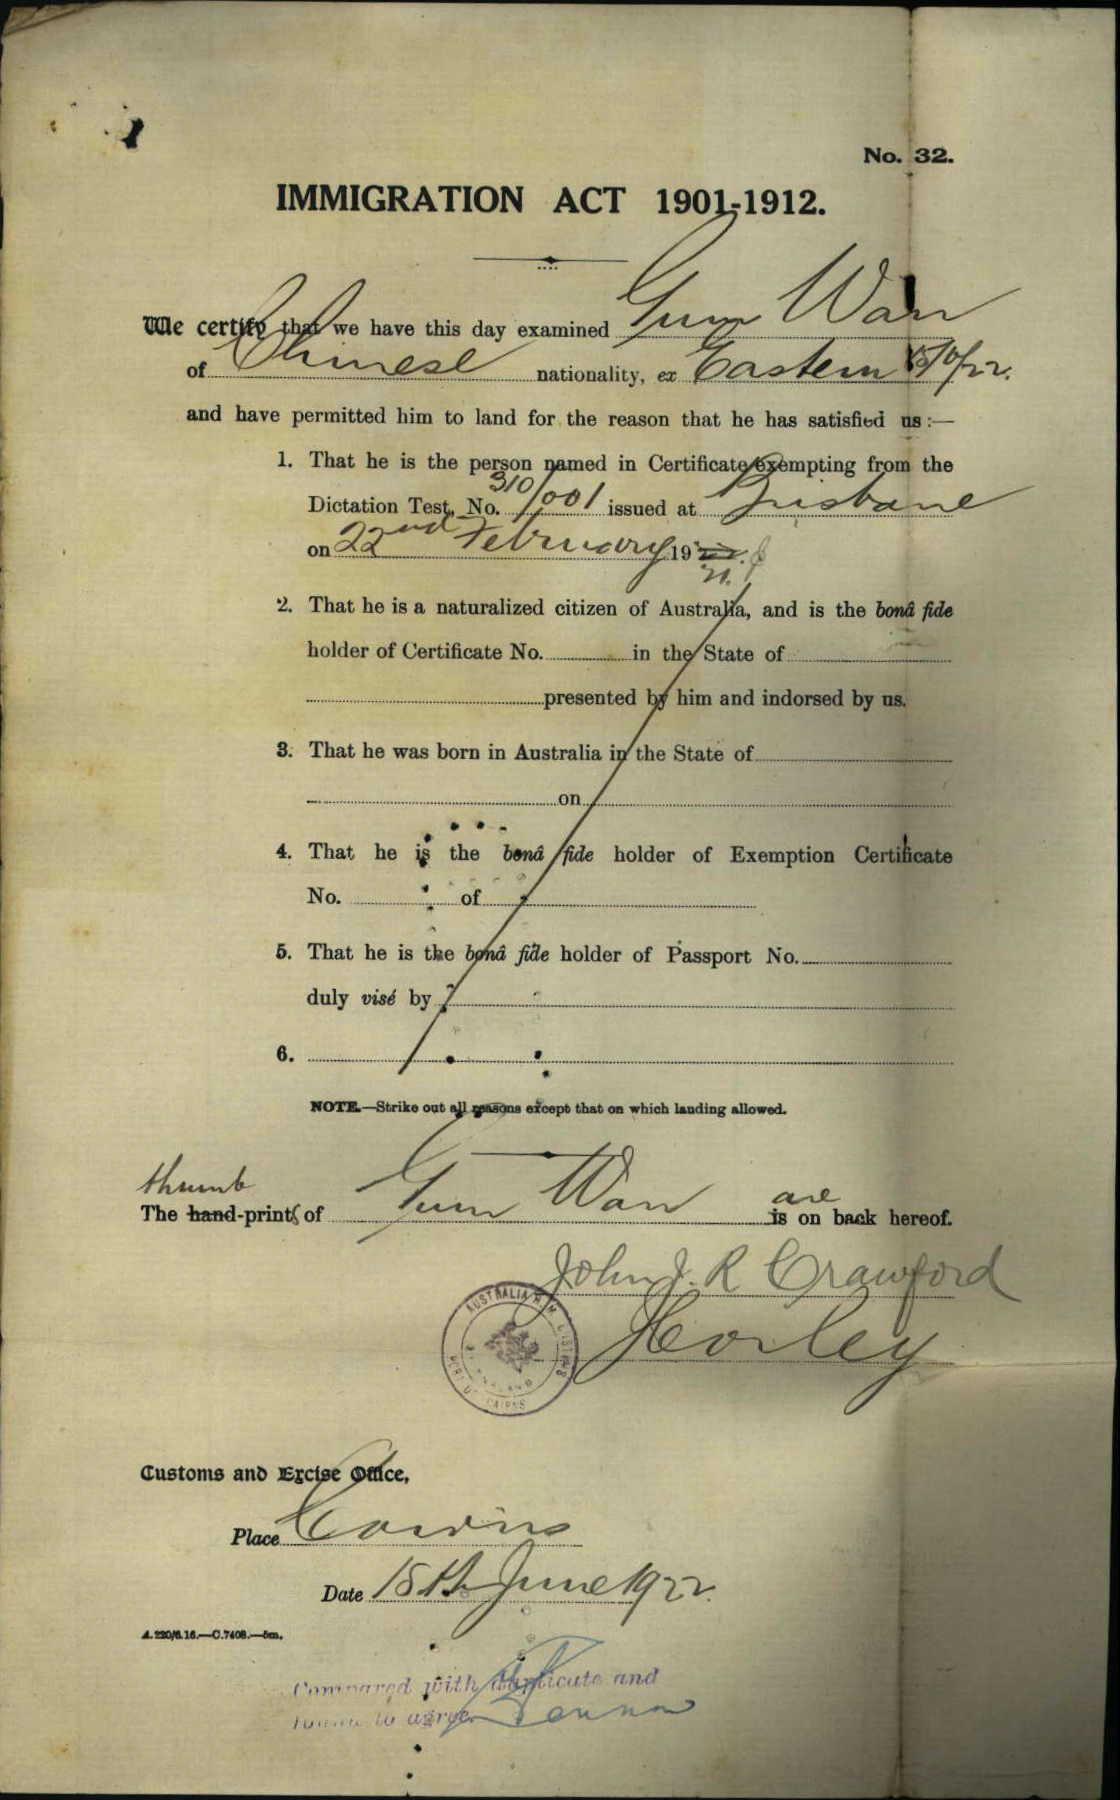 No. 32.
IMMIGRATION ACT 1901-1912.
We certify that we have this day examined Gum Wan
of Chinese nationality, ex Eastern
and have permitted him to land for the reason that he has satisfied us:—
1. That he is the person named in Certificate exempting from the
Dictation Test, No. 310/001 issued at Brisbane
on 22nd February 19 21.
2. That he is a naturalized citizen of Australia, and is the bonâ fide
holder of Certificate No. in the State of
presented by him and indorsed by us.
3. That he was born in Australia in the State of
on
4. That he is the bonâ fide holder of Exemption Certificate
No. of
5. That he is the bonâ fide holder of Passport No.
duly visé by
6.
NOTE.—Strike out all reasons except that on which landing allowed.
thumb are
The hand-prints of Gum Wan is on back hereof.
John J. R Crawford
AUSTRALIA H.M. CUSTOMS
PORT OF CAIRNS
Customs and Excise Office,
Place Cairns
Date 15th June 1922.
A.220/6.16.—C.7408.—5m.
Compared with duplicate and
found to agree.